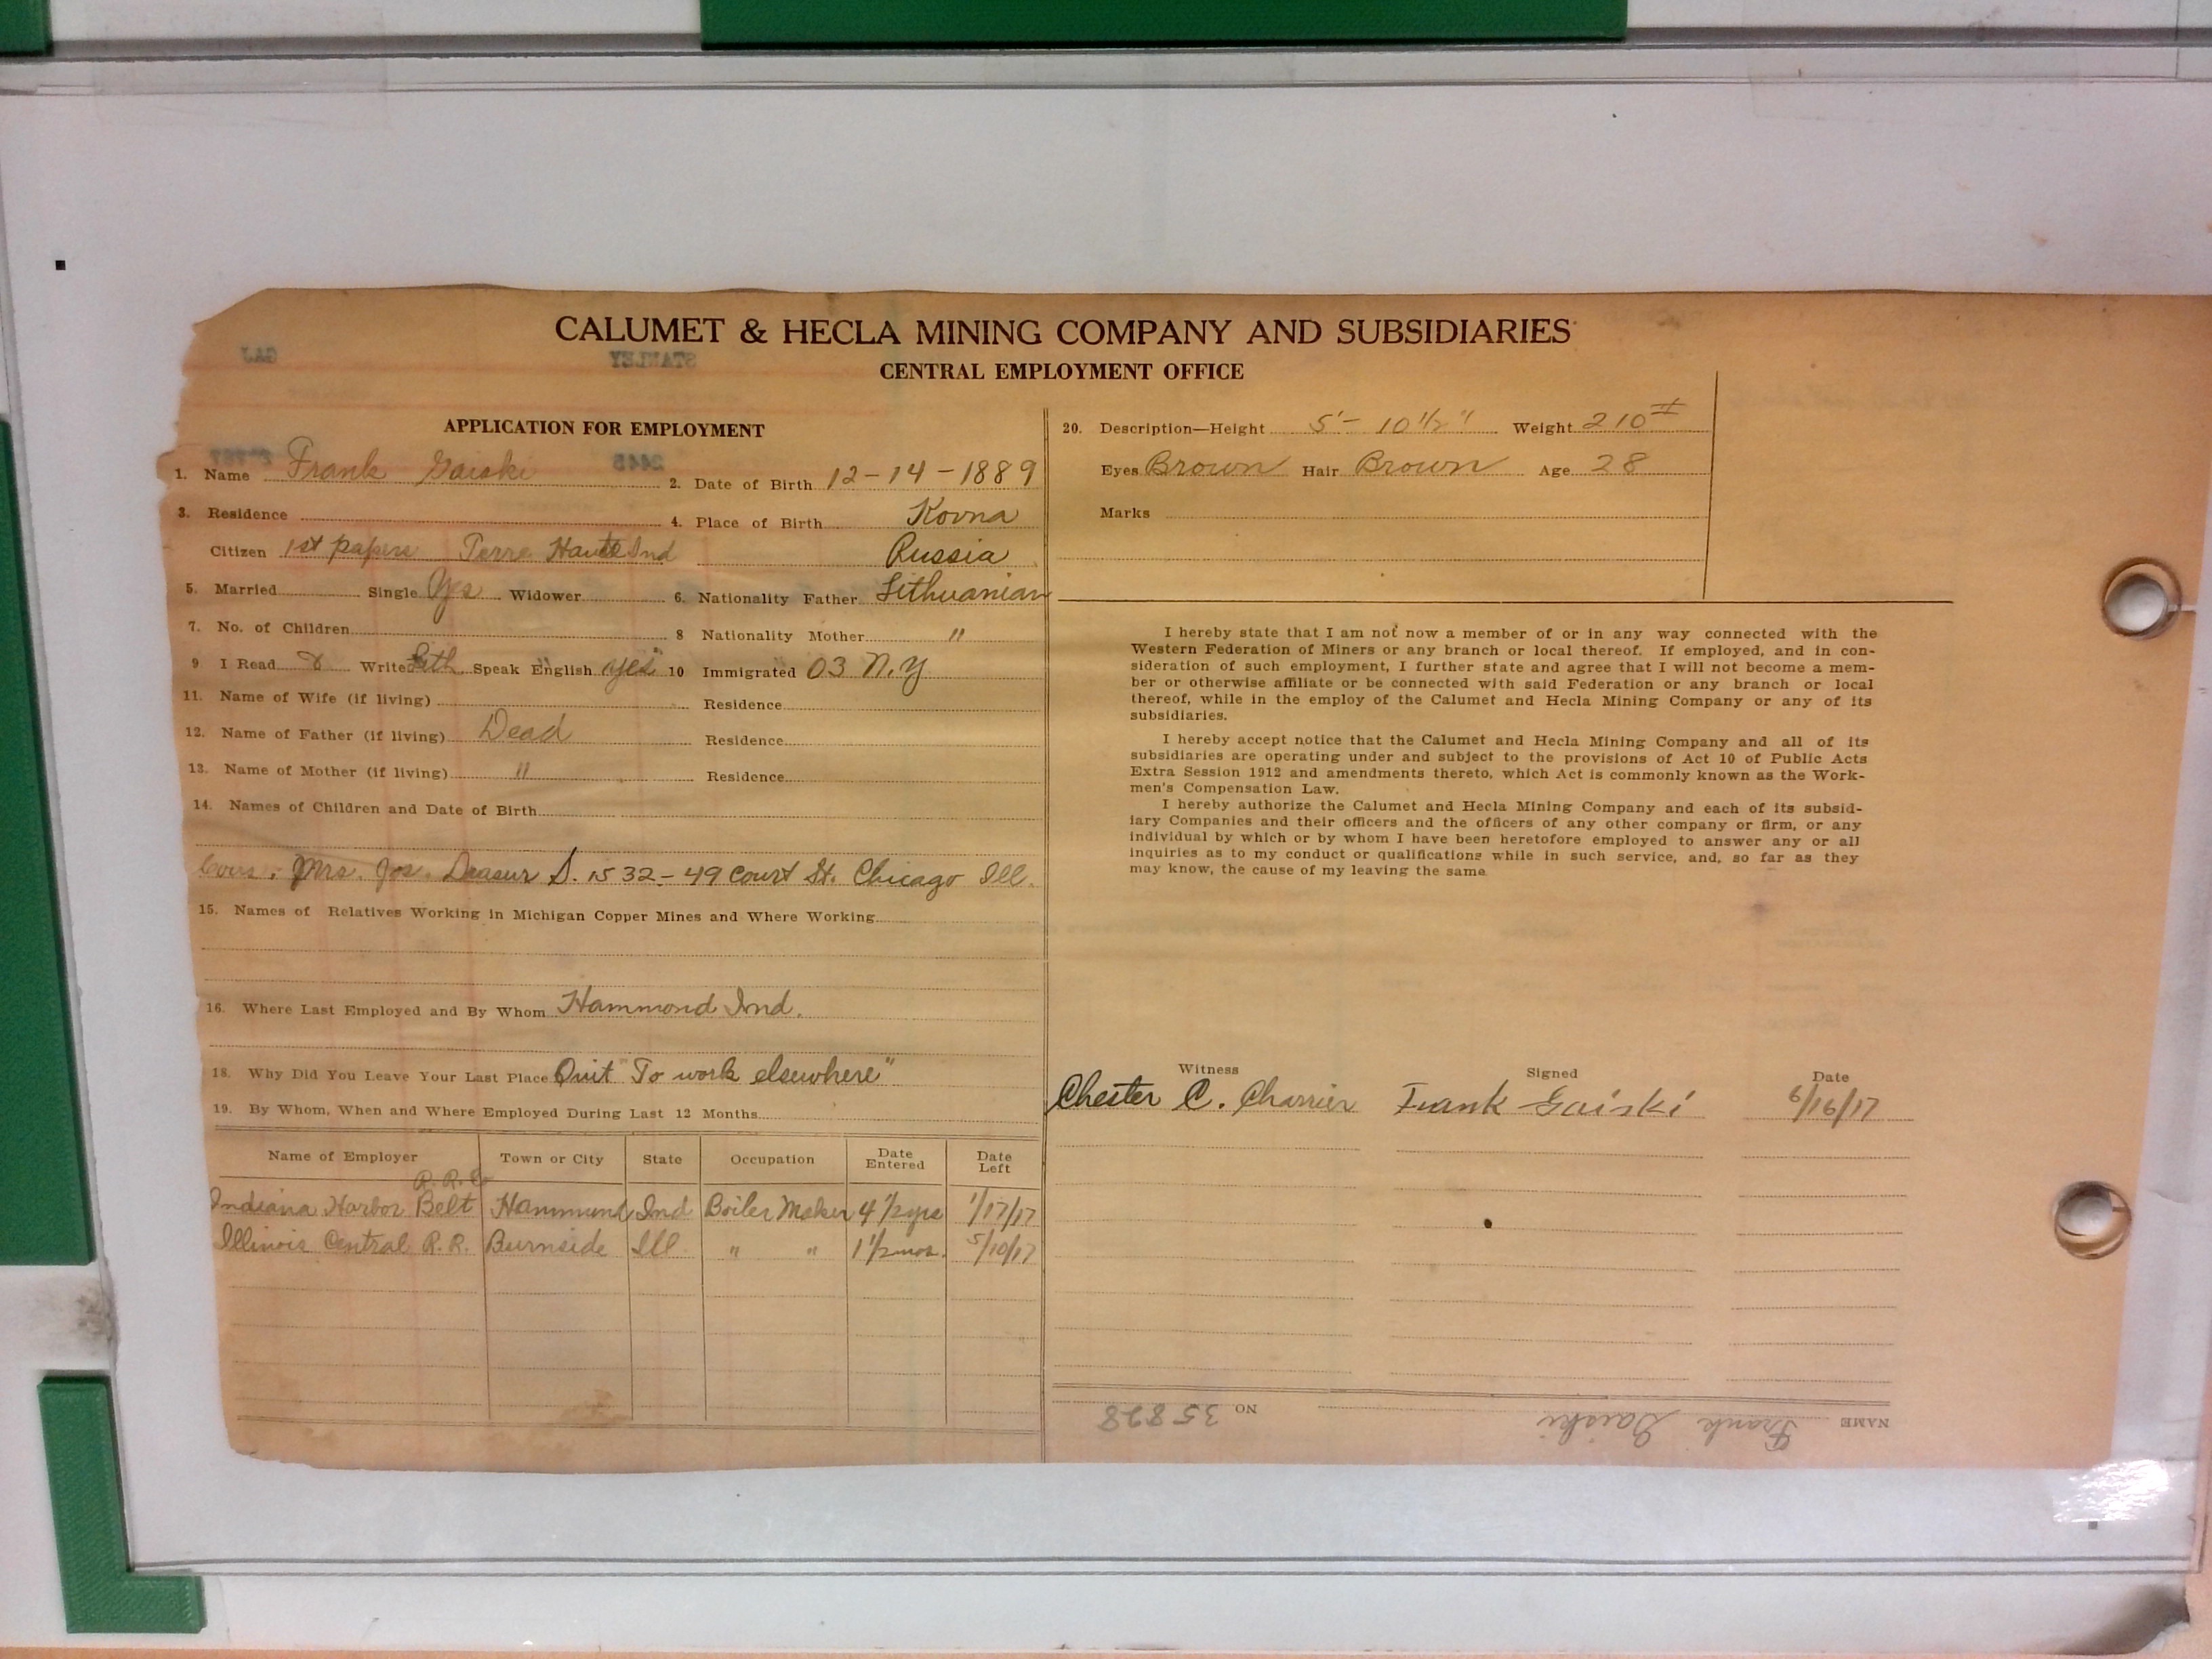 CALUMET & HECLA MINING COMPANY AND SUBSIDIARIES
CENTRAL EMPLOYMENT OFFICE
GAJ STANLEY
APPLICATION FOR EMPLOYMENT
2445
1. Name Frank Gaiski 2. Date of Birth 12-14-1889
3. Residence 4. Place of Birth Kovna
Citizen 1st papers Terre Haute Ind Russia
5. Married Single Yes Widower 6. Nationality Father Lithuanian
7. No. of Children 8 Nationality Mother "
9 I Read & Write Lith Speak English "yes" 10 Immigrated 03 N.Y
11. Name of Wife (if living) Residence
12. Name of Father (if living) Dead Residence
13. Name of Mother (if living) " Residence
14. Names of Children and Date of Birth
Cous. Mrs. Jos. S. 1532-49 Court St. Chicago Ill.
15. Names of Relatives Working in Michigan Copper Mines and Where Working
16. Where Last Employed and By Whom Hammond Ind.
18. Why Did You Leave Your Last Place Quit "To work elsewhere"
19. By Whom, When and Where Employed During Last 12 Months
Name of Employer Town or City State Occupation Date Entered Date Left
R.R. Co
Indiana Harbor Belt Hammond Ind Boiler Maker 4 1/2 yrs 1/17/17
Illinois Central R.R. Burnside Ill " " 1 1/2 mos. 5/10/17
20. Description—Height 5'- 10 1/2" Weight 210#
Eyes Brown Hair Brown Age 28
Marks
I hereby state that I am not now a member of or in any way connected with the
Western Federation of Miners or any branch or local thereof. If employed, and in con-
sideration of such employment, I further state and agree that I will not become a mem-
ber or otherwise affiliate or be connected with said Federation or any branch or local
thereof, while in the employ of the Calumet and Hecla Mining Company or any of its
subsidiaries.
I hereby accept notice that the Calumet and Hecla Mining Company and all of its
subsidiaries are operating under and subject to the provisions of Act 10 of Public Acts
Extra Session 1912 and amendments thereto, which Act is commonly known as the Work-
men's Compensation Law.
I hereby authorize the Calumet and Hecla Mining Company and each of its subsid-
iary Companies and their officers and the officers of any other company or firm, or any
individual by which or by whom I have been heretofore employed to answer any or all
inquiries as to my conduct or qualifications while in such service, and, so far as they
may know, the cause of my leaving the same
Witness Signed Date
Chester C. Charrier Frank Gaiski 6/16/17
NAME Frank Gaiski NO 35828